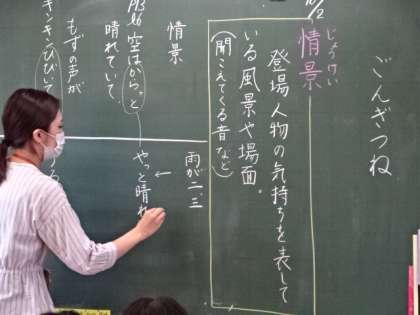 ごんぎつね
10/2
じょうけい
情景
登場人物の気持ちを表して
いる風景や場面。
(聞こえてくる音など)
情景
雨が二、三
↓
やっと晴れ
空はからっと
晴れていて、
もずの声が
キンキンひびいて